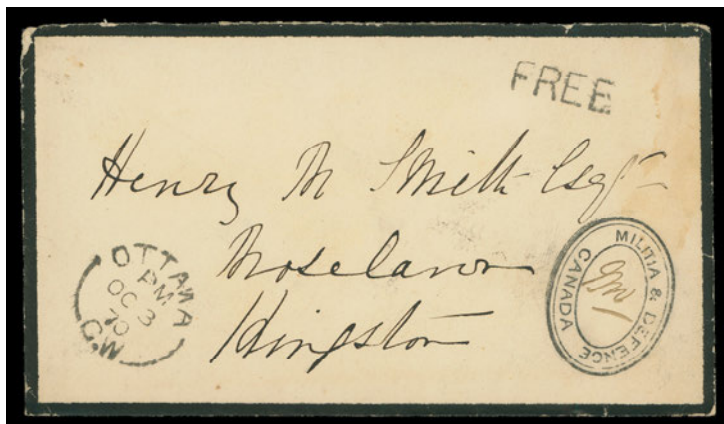 FREE
Henry M Smith Esqr
Kingston
OTTAWA
PM
OC 3
70
C.W
MILITIA & DEFENCE
CANADA